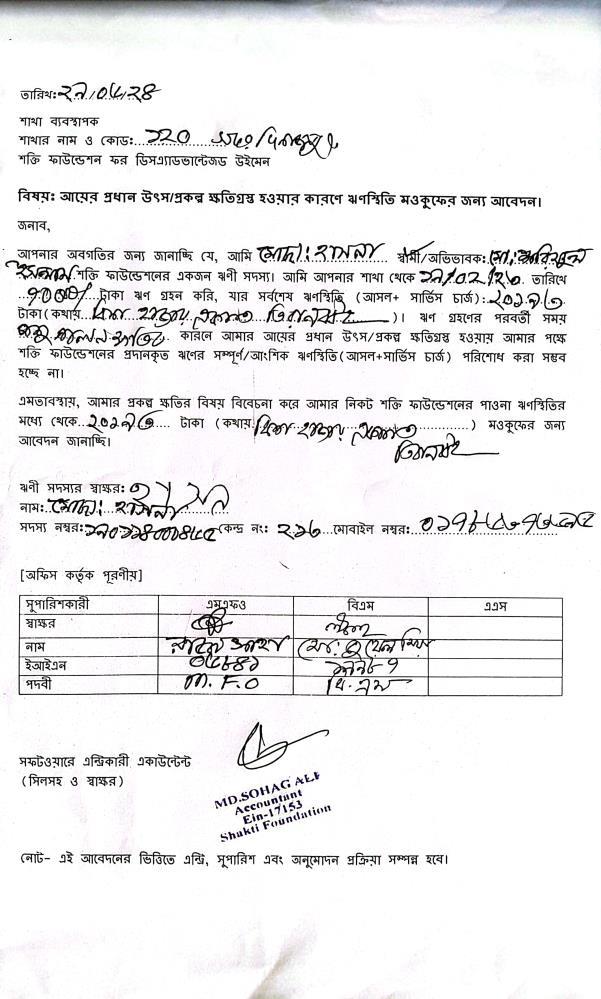 তারিখ:
শাখা ব্যবস্থাপক
শাখার নাম ও কোড: ১২০
শক্তি ফাউন্ডেশন ফর ডিসএ্যাডভান্টেজড উইমেন
বিষয়: আয়ের প্রধান উৎস/প্রকল্প ক্ষতিগ্রস্ত হওয়ার কারণে ঋণস্থিতি মওকুফের জন্য আবেদন।
জনাব,
আপনার অবগতির জন্য জানাচ্ছি যে, আমি মোছা: হাসনা স্বামী/অভিভাবক: মো:
ইসলাম শক্তি ফাউন্ডেশনের একজন ঋণী সদস্য। আমি আপনার শাখা থেকে তারিখে
৭০০০০ টাকা ঋণ গ্রহন করি, যার সর্বশেষ ঋণস্থিতি (আসল+ সার্ভিস চার্জ):
টাকা (কথায় হাজার একশত তিরানব্বই )। ঋণ গ্রহণের পরবর্তী সময়
কারনে আমার আয়ের প্রধান উৎস/প্রকল্প ক্ষতিগ্রস্ত হওয়ায় আমার পক্ষে
শক্তি ফাউন্ডেশনের প্রদানকৃত ঋণের সম্পূর্ণ/আংশিক ঋণস্থিতি(আসল+সার্ভিস চার্জ) পরিশোধ করা সম্ভব
হচ্ছে না।
এমতাবস্থায়, আমার প্রকল্প ক্ষতির বিষয় বিবেচনা করে আমার নিকট শক্তি ফাউন্ডেশনের পাওনা ঋণস্থিতির
মধ্যে থেকে টাকা (কথায় হাজার একশত ) মওকুফের জন্য
তিরানব্বই
আবেদন জানাচ্ছি।
ঋণী সদস্যর স্বাক্ষর:
নাম: মোছা: হাসনা
সদস্য নম্বর: কেন্দ্র নং: ২১৬ মোবাইল নম্বর:
[অফিস কর্তৃক পূরণীয়]
সুপারিশকারী এমএফও বিএম এএস
স্বাক্ষর
নাম
ইআইএন
পদবী M.F.O বি.এম
সফটওয়ারে এন্ট্রিকারী একাউন্টেন্ট
(সিলসহ ও স্বাক্ষর)
MD.SOHAG ALI
Accountant
Ein-17153
Shakti Foundation
নোট- এই আবেদনের ভিত্তিতে এন্ট্রি, সুপারিশ এবং অনুমোদন প্রক্রিয়া সম্পন্ন হবে।